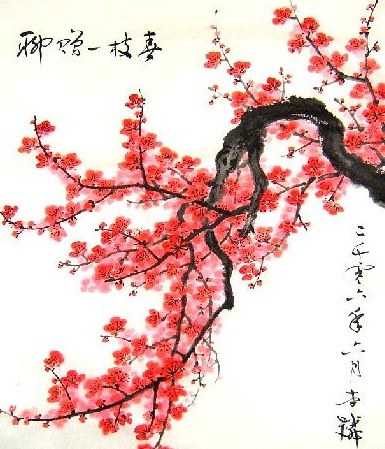 聊赠一枝春
二千零六年六月李